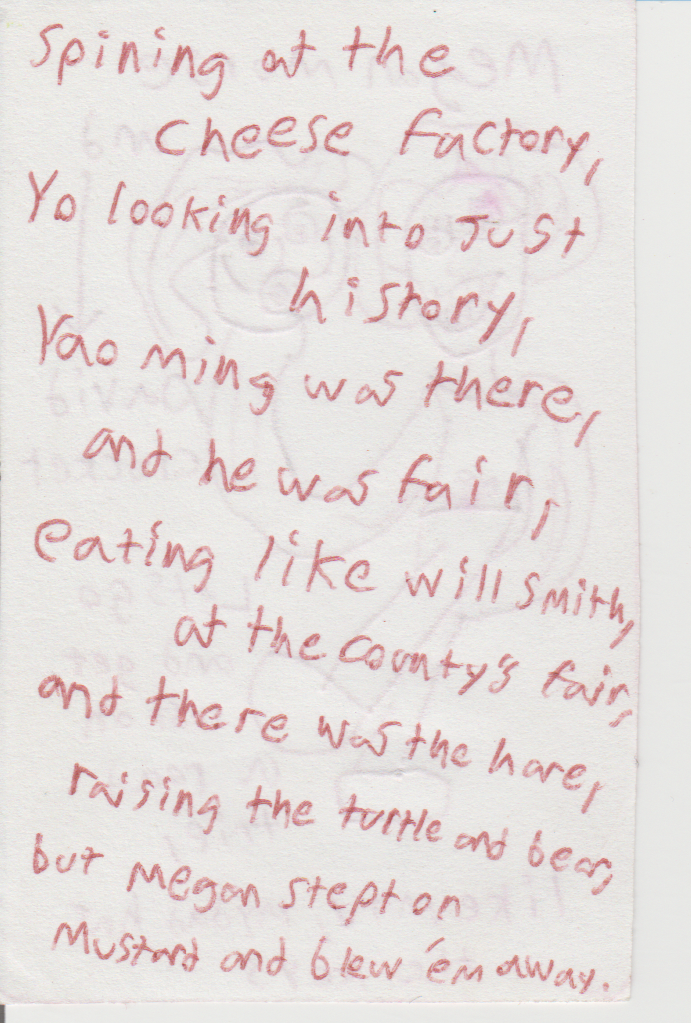 Spining at the
cheese factory,
Yo looking into Just
history,
Yao ming was there,
and he was fair,
eating like will smith,
at the county's fair,
and there was the hare,
raising the turtle and bear,
but Megan stept on
Mustard and blew 'em away.